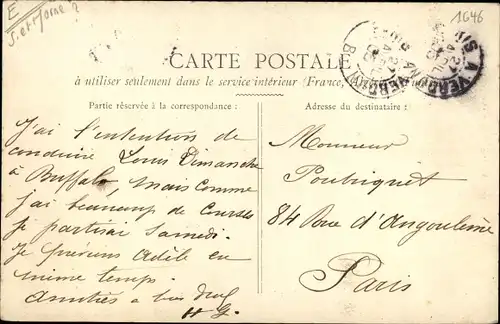 E
S. et Marne ?
1646
CARTE POSTALE
à utiliser seulement dans le service intérieur (France,
Partie réservée à la correspondance :
Adresse du destinataire :
J'ai l'intention de
conduire Louis Dimanche
à Buffalo, mais comme
j'ai beaucoup de courses
je partirai Samedi.
Je préviens Adèle en
même temps.
Amitiés à tous deux
H G.
Monsieur
Poubiquet
84 Rue d'Angoulême
Paris